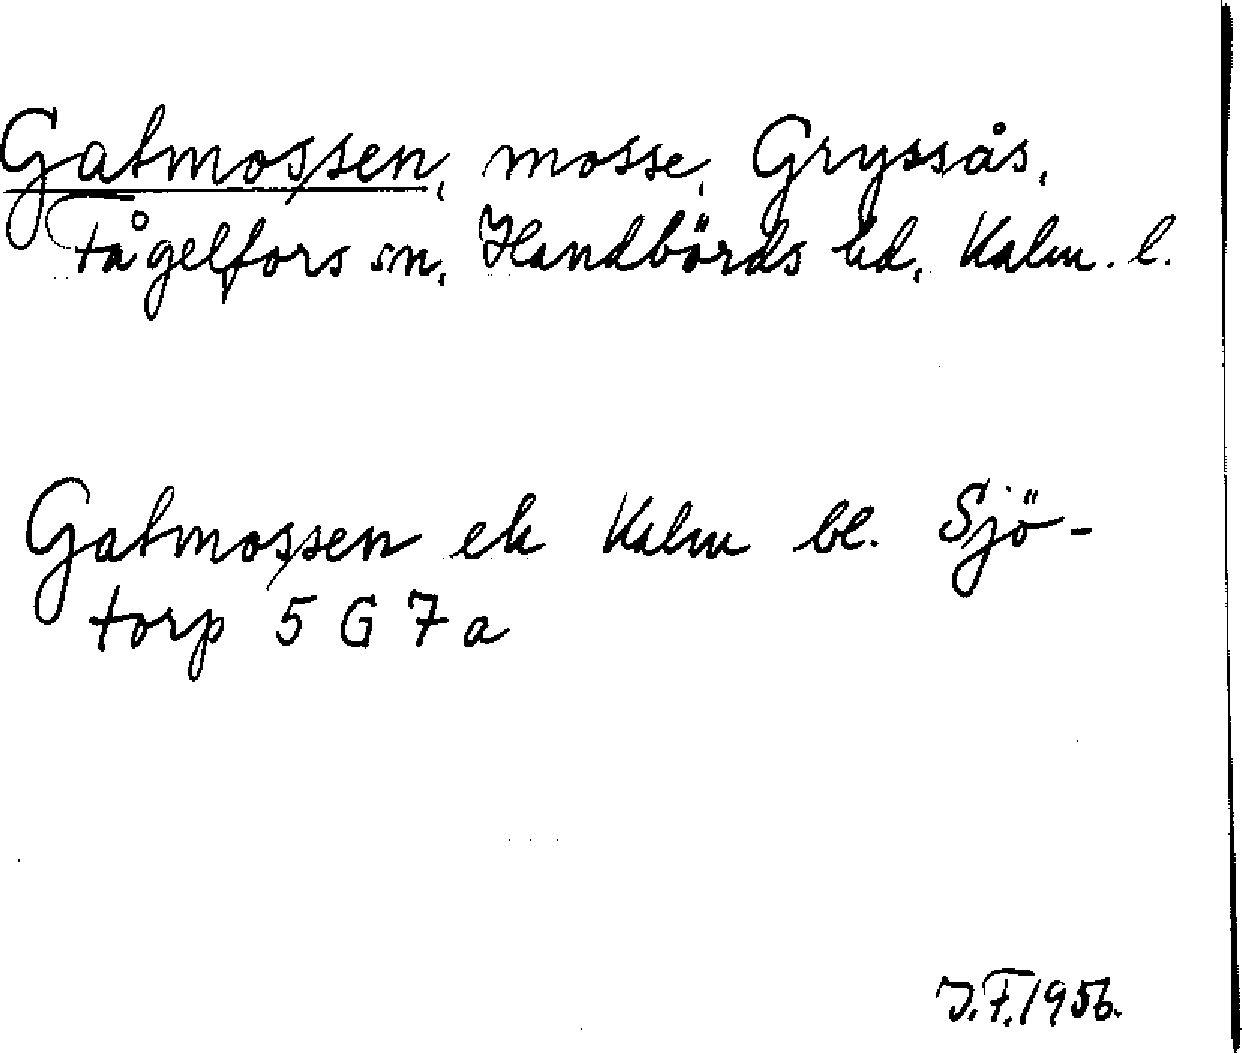 Gatmossen, mosse, Gryssås,
Fågelfors sn, Handbörds hd, Kalm. l.
Gatmossen ek Kalm bl. Sjö-
torp 5 G 7 a
J.F. 1956.